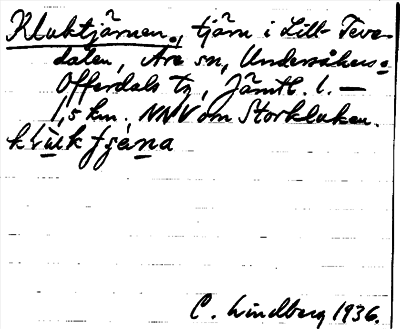 Kluktjärnen, tjärn i Lill-Teve-
dalen, Åre sn, Undersåkers o
Offerdals tg, Jämtl. l. —
1,5 km. NNV om Storkluken.
klu̲k tjæ̲n̲a
C. Lindberg 1936.